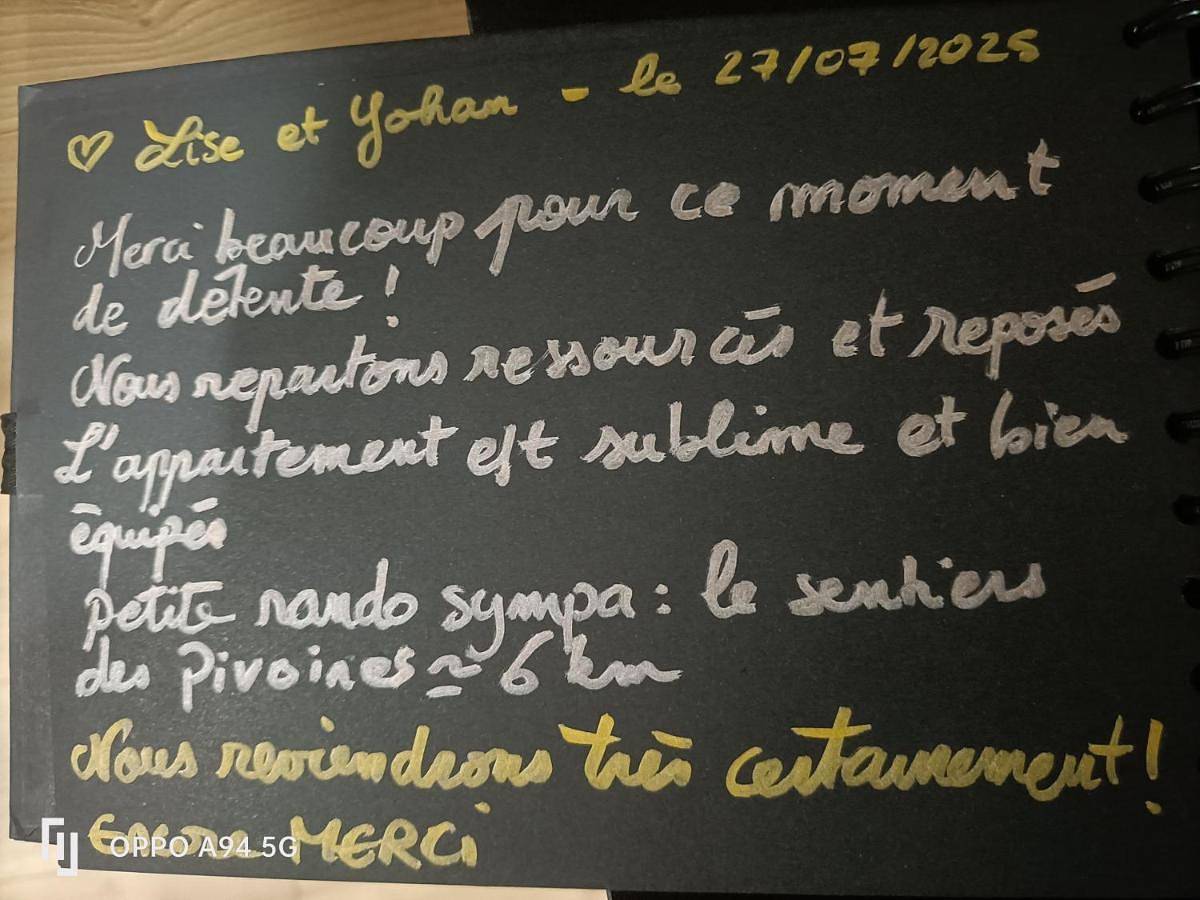 ♡ Lise et Yohan - le 27/07/2025
Merci beaucoup pour ce moment
de détente !
Nous repartons ressourcés et reposés
L'appartement est sublime et bien
équipés
Petite rando sympa : le sentiers
des Pivoines ≃ 6 km
Nous reviendrons très certainement !
Encore MERCi
OPPO A94 5G